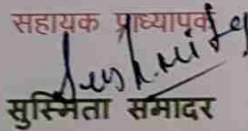 सहायक प्राध्यापक
सुस्मिता समादर